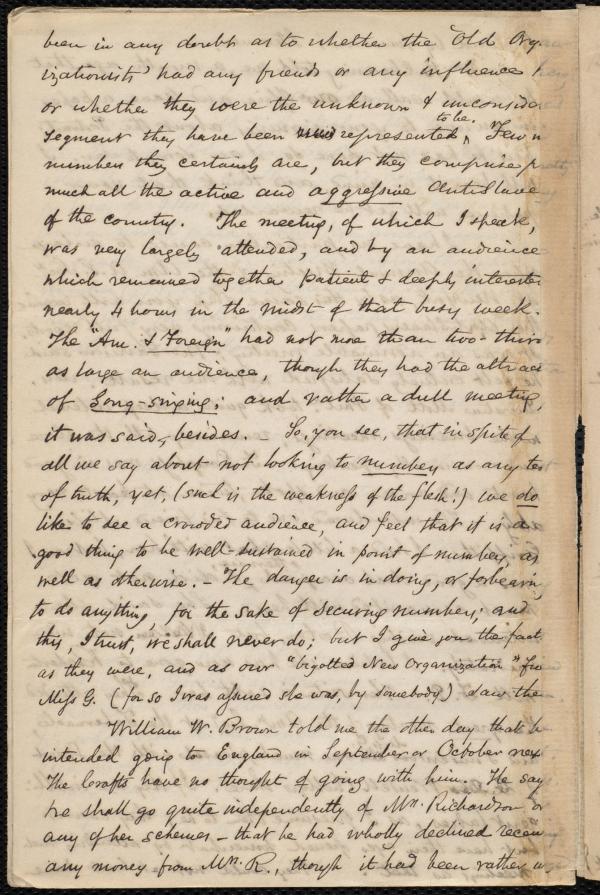 been in any doubt as to whether the "Old Org-
izationists' had any friends or any influence
or whether they were the unknown & unconsider
segment they have been represented to be. Few in
numbers they certainly are, but they comprise pretty
much all the active and aggressive Antislave
of the country. The meeting, of which I speak,
was very largely attended, and by an audience
which remained together patient & deeply interested
nearly 4 hours in the midst of that busy week.
The "Am. & Foreign" had not more than two-thir
as large an audience, though they had the attract
of Song-singing; and rather a dull meeting,
it was said, besides. – So, you see, that in spite of
all we say about not looking to numbers as any test
of truth, yet, (such is the weakness of the flesh!) we do
like to see a crowded audience, and feel that it is a
good thing to be well-sustained in point of numbers, as
well as otherwise. – The danger is in doing, or forbearing
to do anything, for the sake of securing numbers; and
this, I trust, we shall never do; but I give you the fact
as they were, and as our "bigotted New Organization" frie
Miss G. (for so I was assured she was, by somebody) saw the
William W. Brown told me the other day that h
intended going to England in September or October next
The Crafts have no thought of going with him. He say
he shall go quite independently of Mrs. Richardson or
any of her schemes – that he had wholly declined receiv
any money from Mrs. R., though it had been rather u